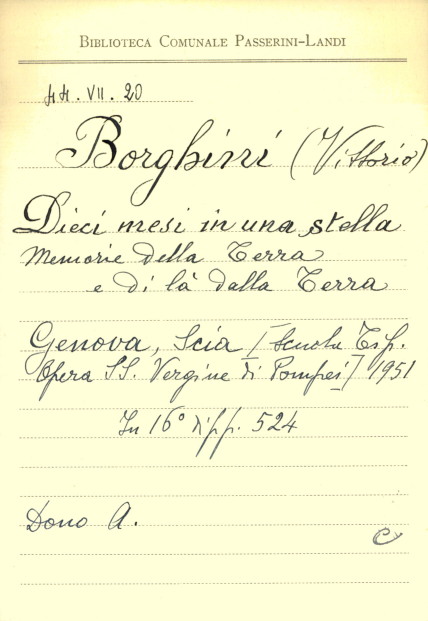 BIBLIOTECA COMUNALE PASSERINI-LANDI
44.VII.20
Borghini (Vittorio)
Dieci mesi in una stella
Memorie della Terra
e di là dalla Terra
Genova, Scia [Scuola Tip.
Opera SS. Vergine di Pompei] 1951
In 16° di pp. 524
Dono A.